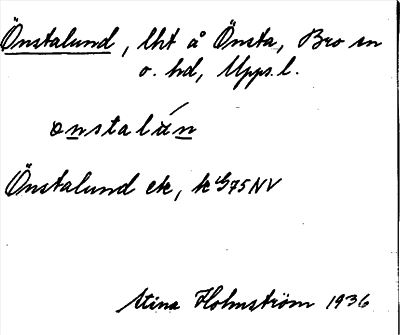 Önstalund, lht å Önsta, Bro sn
o. hd, Upps.l.
ønstalún
Önstalund ek, k G75NV
Stina Holmström 1936